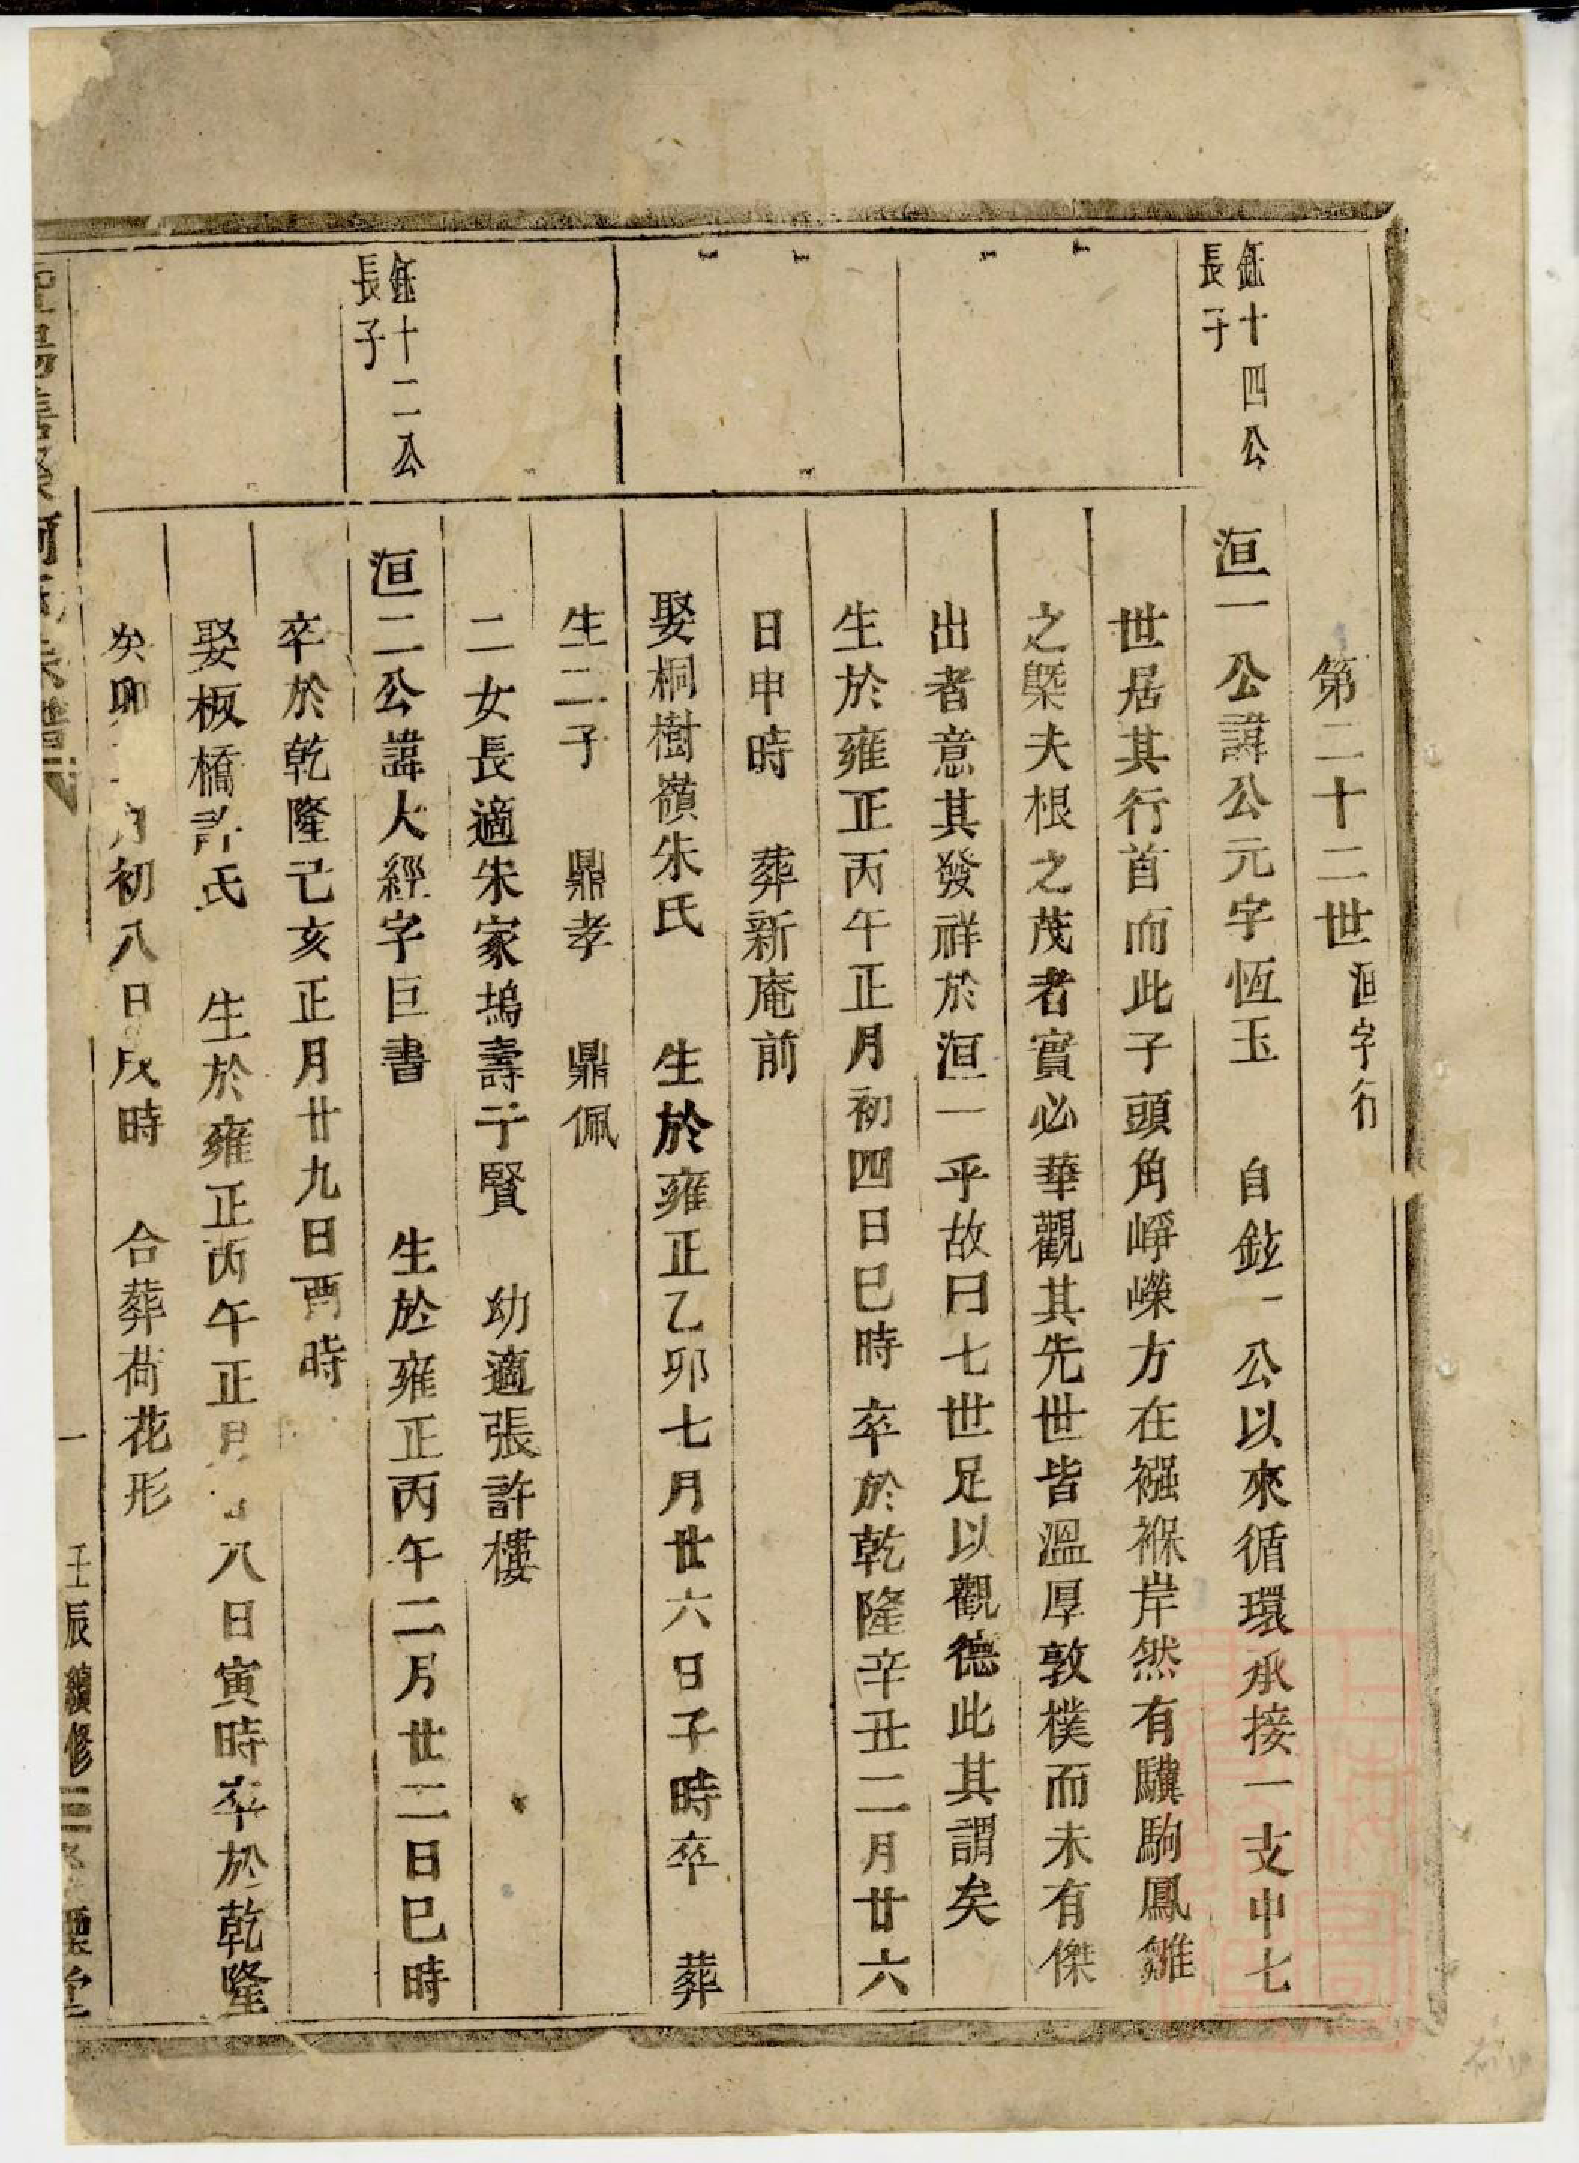 第二十二世洹字行
鉉十四公
長子
洹一公諱公元字恆玉 自鉉一公以來循環承接一支中七
世居其行首而此子頭角崢嶸方在襁褓岸然有驥駒鳳雛
之槩夫根之茂者實必華觀其先世皆溫厚敦樸而未有傑
出者意其發祥於洹一乎故曰七世足以觀德此其謂矣
生於雍正丙午正月初四日巳時 卒於乾隆辛丑二月廿六
日申時 葬新庵前
娶桐樹嶺朱氏 生於雍正乙卯七月廿六日子時卒 葬
生二子 鼎孝 鼎佩
二女長適朱家塢壽子賢 幼適張許樓
鉉十二公
長子
洹二公諱大經字巨書 生於雍正丙午二月廿二日巳時
卒於乾隆己亥正月廿九日酉時
娶板橋許氏 生於雍正丙午正月 八日寅時卒於乾隆
癸卯 月初八日戌時 合葬荷花形
一 壬辰續修